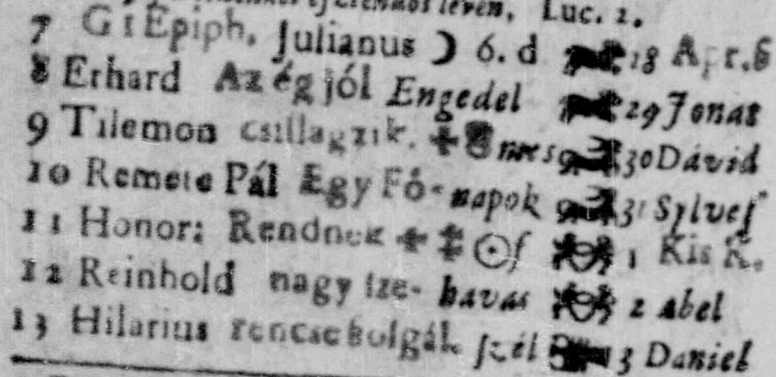 leven, Luc. 2.
7 G 1 Epiph. Julianus ☽ 6. d 28 Apr. 6
8 Erhard Az ég jól Engedel 29 Jonat
9 Tilemon csillagzik. 30 Dávid
10 Remete Pál Egy Fő- napok 31 Sylves
11 Honor: Rendnek ☉ 1 Kis K.
12 Reinhold nagy sze- havas 2 Abel
13 Hilarius rencse szél 3 Daniel